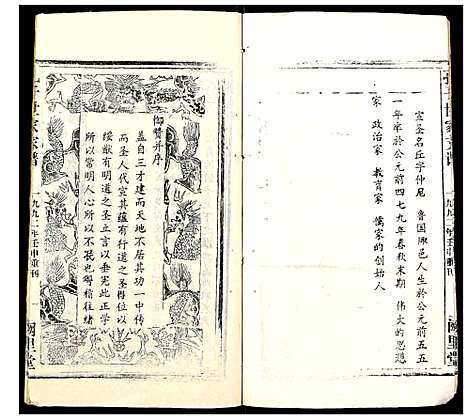 宣圣名丘字仲尼　鲁国陬邑人生於公元前五五
一年卒於公元前四七九年春秋末期　伟大的思想
家　政治家　教育家　儒家的创始人
一九九二年壬申重刊
阙里堂
御赞并序
盖自三才建而天地不居其功一中传
而圣人代宣其蕴有行道之圣得位以
绥猷有明道之圣立言以垂宪此正学
所以常明人心所以不泯也粤稽往绪
世家宗谱
一九九二年壬申重刊
一
阙里堂